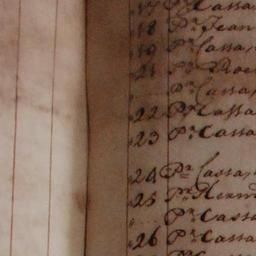 17 Pr Cassa
18 Pr Jean
19 Pr Cassa
21 Pr
Pr Cassa
22 Pr Cassa
23 Pr Cassa
24 Pr Cassa
25 Pr
Pr Cassa
26 Pr Cassa